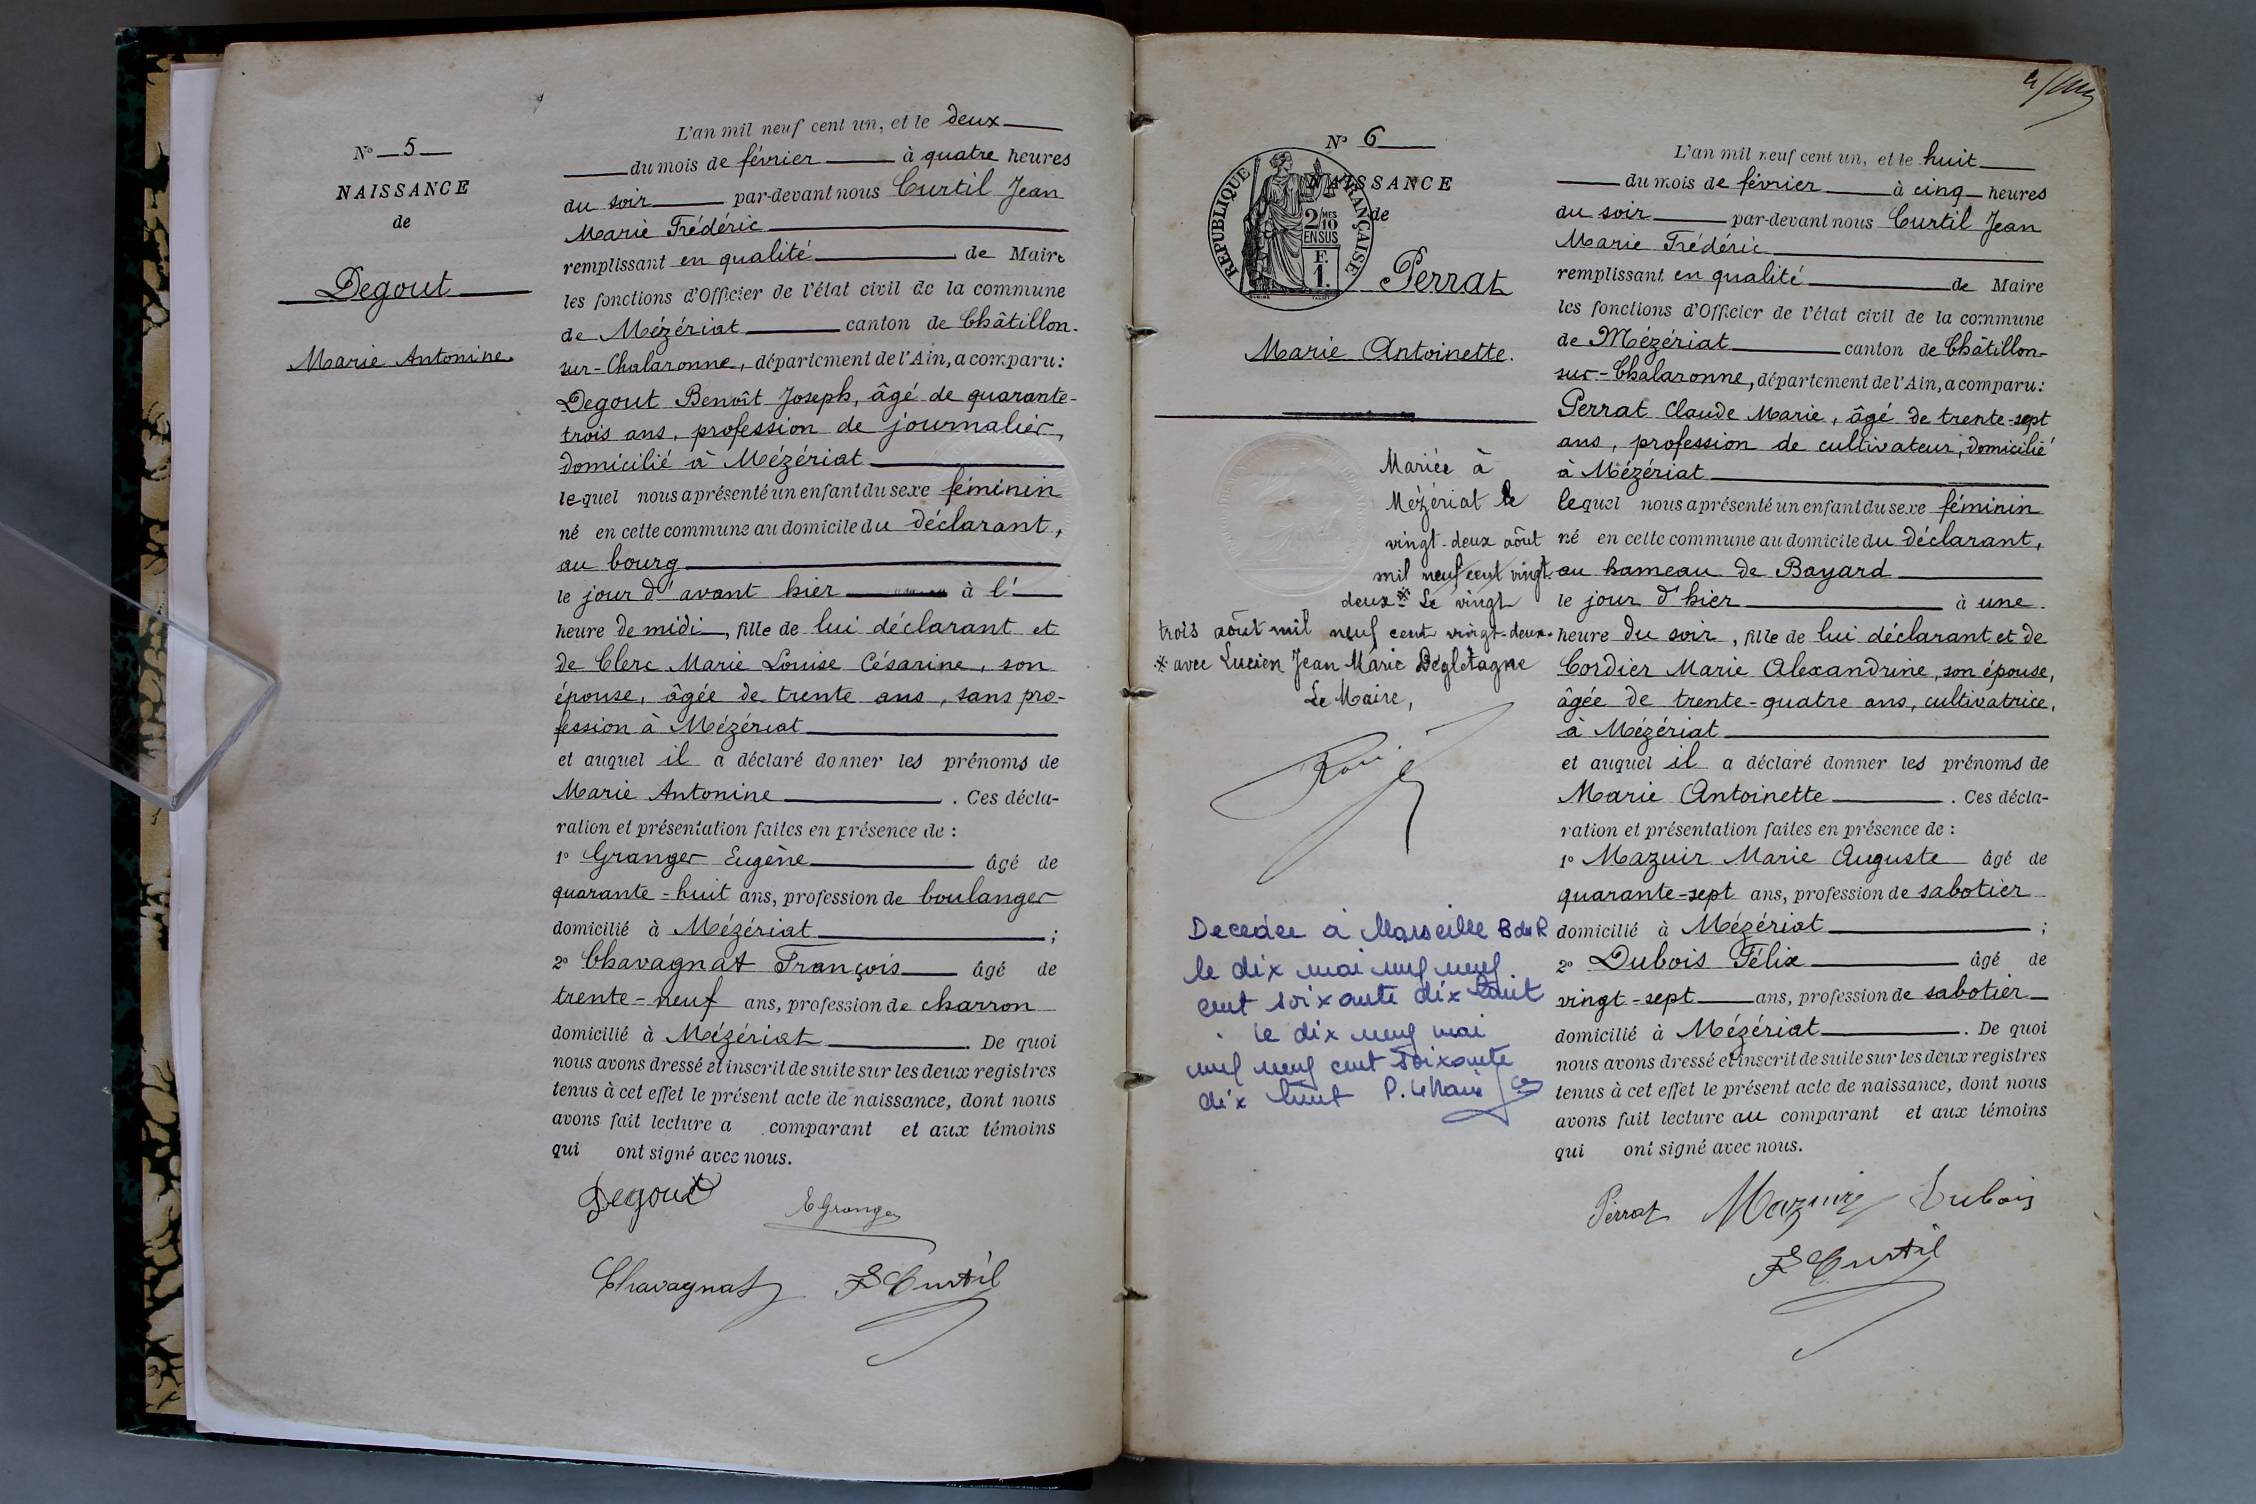 N° 5
NAISSANCE
de
Degout
Marie Antonine.
L'an mil neuf cent un, et le deux
du mois de février à quatre heures
du soir par-devant nous Curtil Jean
Marie Frédéric
remplissant en qualité de Maire
les fonctions d'Officier de l'état civil de la commune
de Mézériat canton de Châtillon-
sur-Chalaronne, département de l'Ain, a comparu :
Degout Benoît Joseph, âgé de quarante-
trois ans, profession de journalier,
domicilié à Mézériat
lequel nous a présenté un enfant du sexe féminin
né en cette commune au domicile du déclarant,
au bourg
le jour d'avant hier à l'
heure de midi, fille de lui déclarant et
de Clerc Marie Louise Césarine, son
épouse, âgée de trente ans, sans pro-
fession à Mézériat
et auquel il a déclaré donner les prénoms de
Marie Antonine . Ces décla-
ration et présentation faites en présence de :
1° Granger Eugène âgé de
quarante-huit ans, profession de boulanger
domicilié à Mézériat ;
2° Chavagnat François âgé de
trente-neuf ans, profession de charron
domicilié à Mézériat . De quoi
nous avons dressé et inscrit de suite sur les deux registres
tenus à cet effet le présent acte de naissance, dont nous
avons fait lecture a comparant et aux témoins
qui ont signé avec nous.
Degout EGranger
Chavagnat F Curtil
N° 6
NAISSANCE
de
RÉPUBLIQUE FRANÇAISE
2/10 MES
EN SUS
F.
1.
Perrat
Marie Antoinette.
Mariée à
Mézériat le
vingt-deux août
mil neuf cent vingt-
deux * Le vingt
trois août mil neuf cent vingt-deux.
* avec Lucien Jean Marie Dégletagne
Le Maire,
Decedee a Marseille B du R
le dix mai mil neuf
cent soixante dix huit
le dix neuf mai
mil neuf cent soixante
dix huit P. le Maire
L'an mil neuf cent un, et le huit
du mois de février à cinq heures
du soir par-devant nous Curtil Jean
Marie Frédéric
remplissant en qualité de Maire
les fonctions d'Officier de l'état civil de la commune
de Mézériat canton de Châtillon-
sur-Chalaronne, département de l'Ain, a comparu :
Perrat Claude Marie, âgé de trente-sept
ans, profession de cultivateur, domicilié
à Mézériat
lequel nous a présenté un enfant du sexe féminin
né en cette commune au domicile du déclarant,
au hameau de Bayard
le jour d'hier à une
heure du soir, fille de lui déclarant et de
Cordier Marie Alexandrine, son épouse,
âgée de trente-quatre ans, cultivatrice,
à Mézériat
et auquel il a déclaré donner les prénoms de
Marie Antoinette . Ces décla-
ration et présentation faites en présence de :
1° Mazuir Marie Auguste âgé de
quarante-sept ans, profession de sabotier
domicilié à Mézériat ;
2° Dubois Félix âgé de
vingt-sept ans, profession de sabotier
domicilié à Mézériat . De quoi
nous avons dressé et inscrit de suite sur les deux registres
tenus à cet effet le présent acte de naissance, dont nous
avons fait lecture au comparant et aux témoins
qui ont signé avec nous.
Perrat Mazuir Dubois
F Curtil